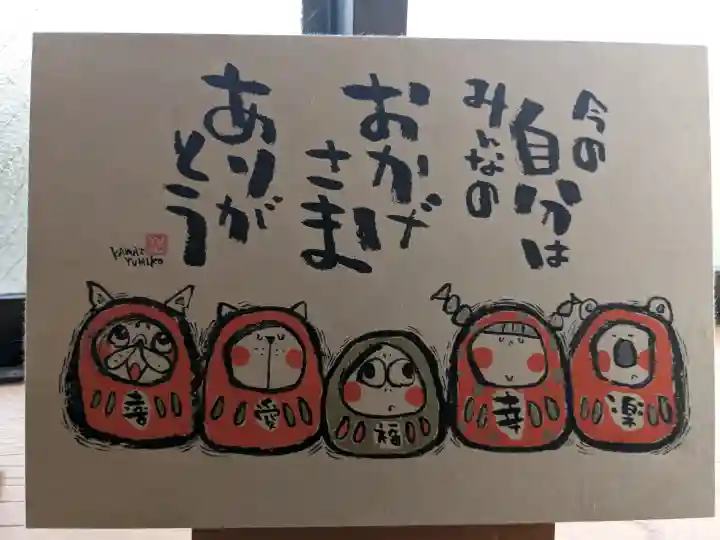 今の
自分は
みんなの
おかげ
さま
ありが
とう
KAMIE
YUMIKO
愛
福
楽